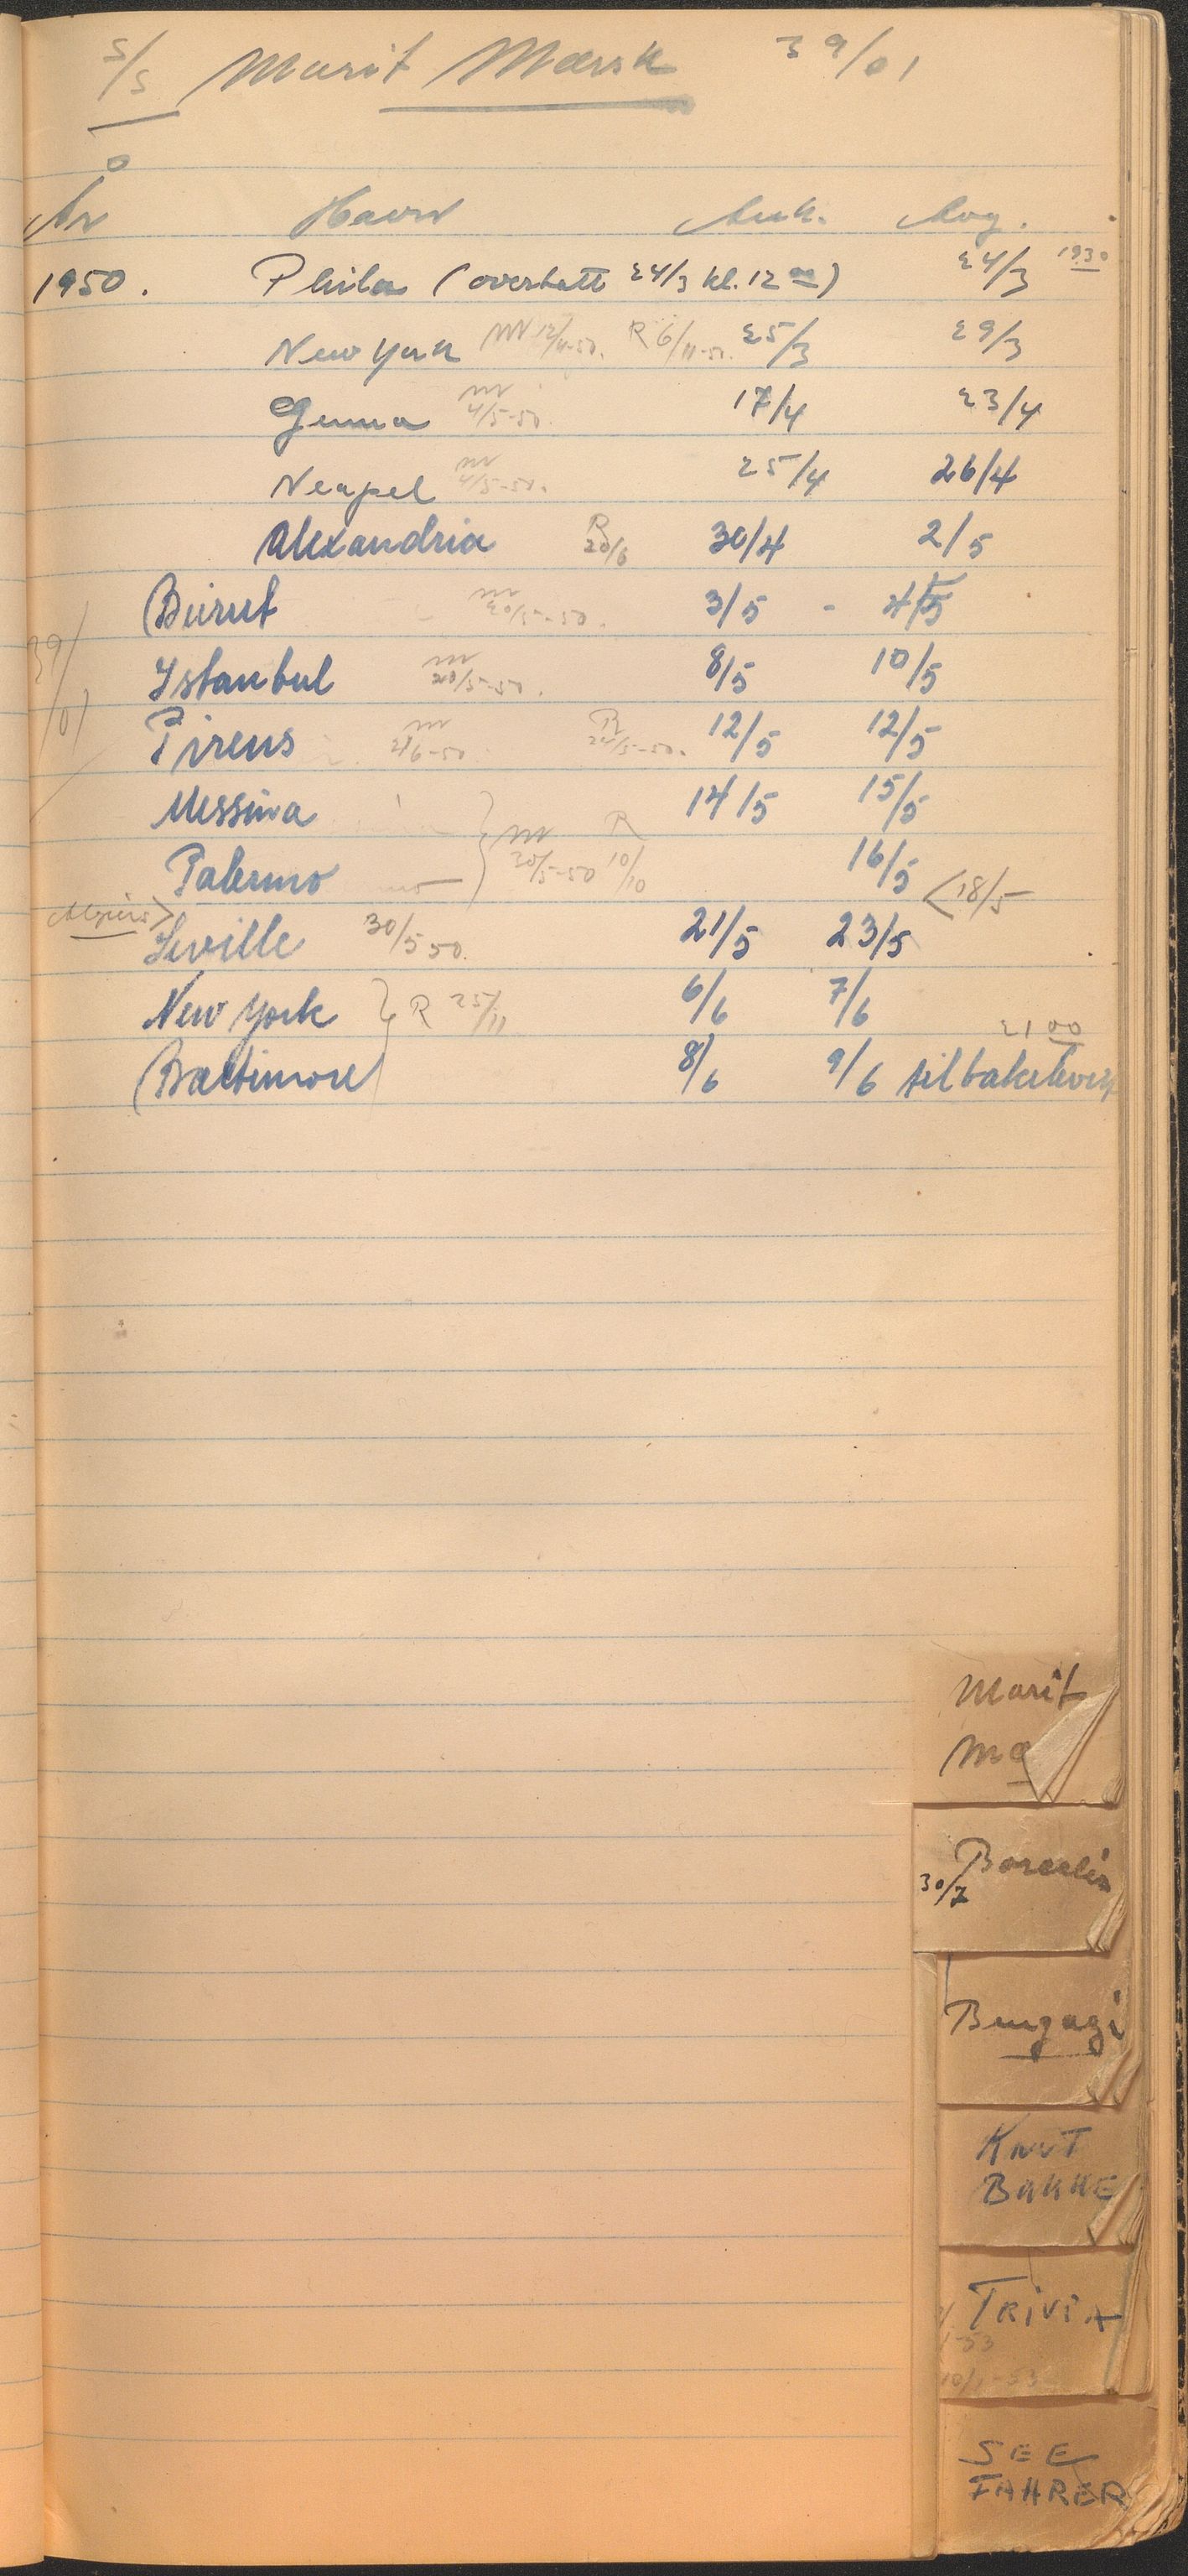 S/S Marit Mærsk 39/01
År Havn Ank. Avg.
1950. Phila (overtatt 24/3 kl. 12 00) 24/3 1930
New York 12/11-50. R 6/11-50. 25/3 29/3
Genua 4/5-50. 17/4 23/4
Neapel 4/5-50. 25/4 26/4
Alexandria R 20/6 30/4 2/5
Beirut 30/5-50. 3/5 - 4/5
39/01
Istanbul 20/5-50. 8/5 10/5
Pireus 2/6-50 R 24/5-50. 12/5 12/5
Messina 14/5 15/5
} 30/5-50 R 10/10
Palermo 16/5
Algiers > < 18/5
Seville 30/5 50. 21/5 23/5
New York } R 25/11 6/6 7/6
Baltimore 8/6 9/6 2100 tilbakelever
Marit
Mæ
30/7
Bengazi
KNUT
BAKKE
TRIVIA
1-53
10/1-53
SEE
FAHRER